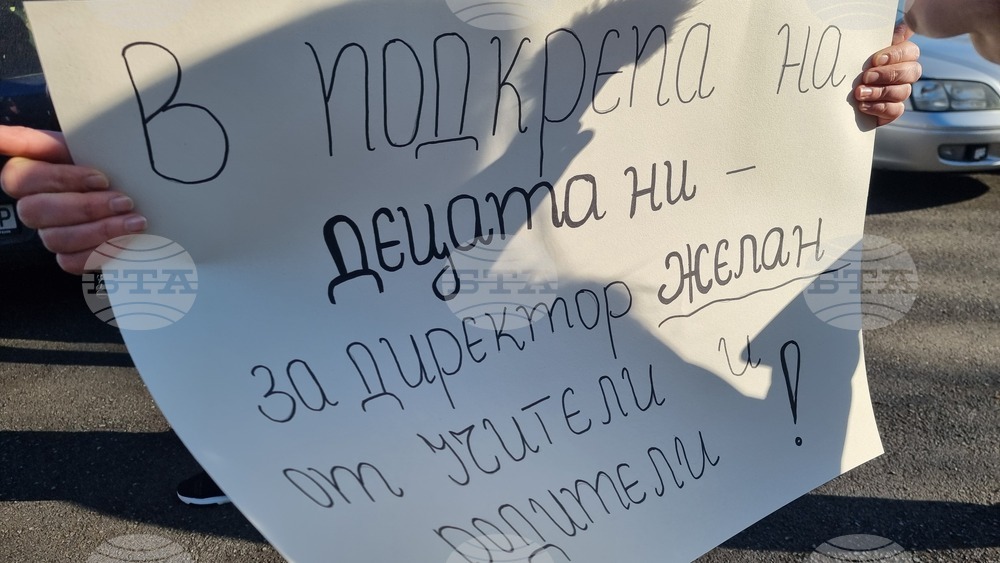 В ПОДКРЕПА НА
ДЕЦАТА НИ –
ЗА ДИРЕКТОР ЖЕЛАН
ОТ УЧИТЕЛИ И
РОДИТЕЛИ!
БТА
БТА
БТА
Р